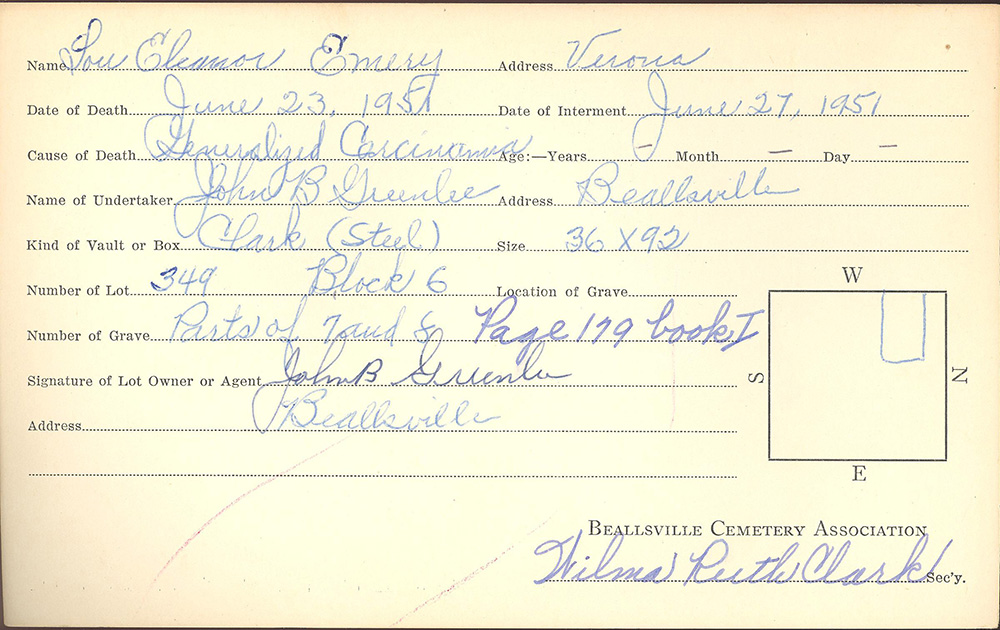 Name Lou Eleanor Emery Address Verona
Date of Death June 23, 1951 Date of Interment June 27, 1951
Cause of Death Generalized Carcinomia Age:—Years – Month – Day –
Name of Undertaker John B Greenlee Address Beallsville
Kind of Vault or Box Clark (Steel) Size 36 X 92
Number of Lot 349 Block 6 Location of Grave
Number of Grave Parts of 7 and 8 Page 179 book I
Signature of Lot Owner or Agent John B Greenlee
Address Beallsville
W
S
N
E
Beallsville Cemetery Association
Wilma Ruth Clark Sec'y.